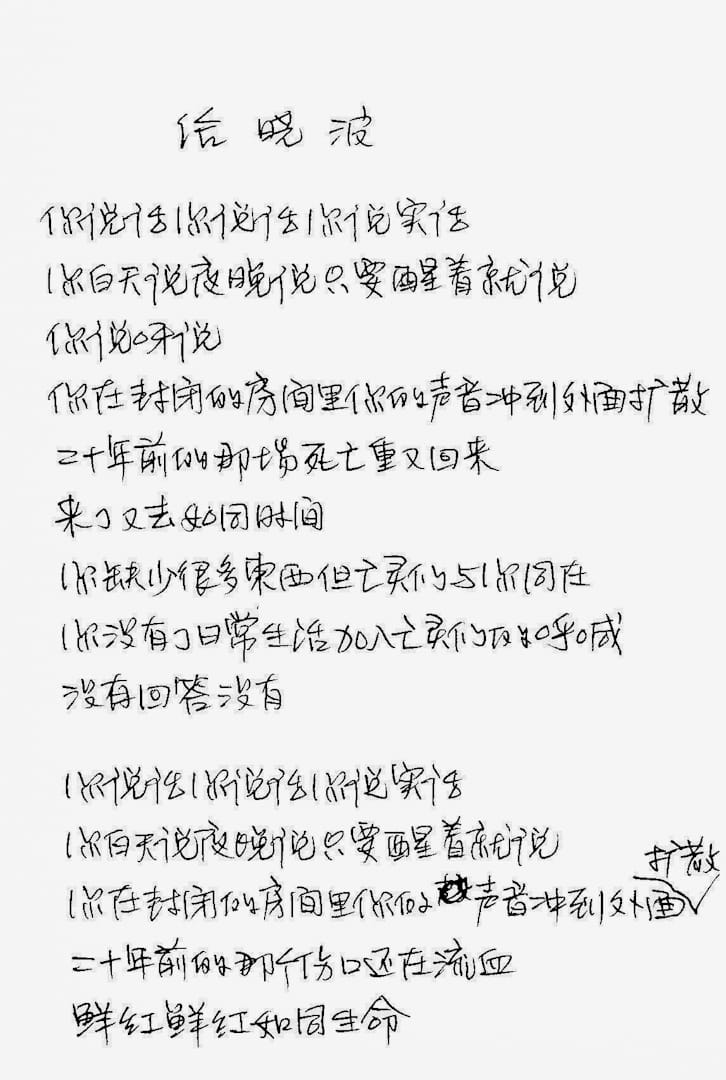 给晓波
你说话你说话你说实话
你白天说夜晚说只要醒着就说
你说呀说
你在封闭的房间里你的声音冲到外面扩散
二十年前的那场死亡重又回来
来了又去如同时间
你缺少很多東西但亡灵们与你同在
你没有了日常生活加入亡灵们的呼喊
没有回答没有
你说话你说话你说实话
你白天说夜晚说只要醒着就说
你在封闭的房间里你的声音冲到外面扩散
二十年前的那个伤口还在流血
鲜红鲜红如同生命